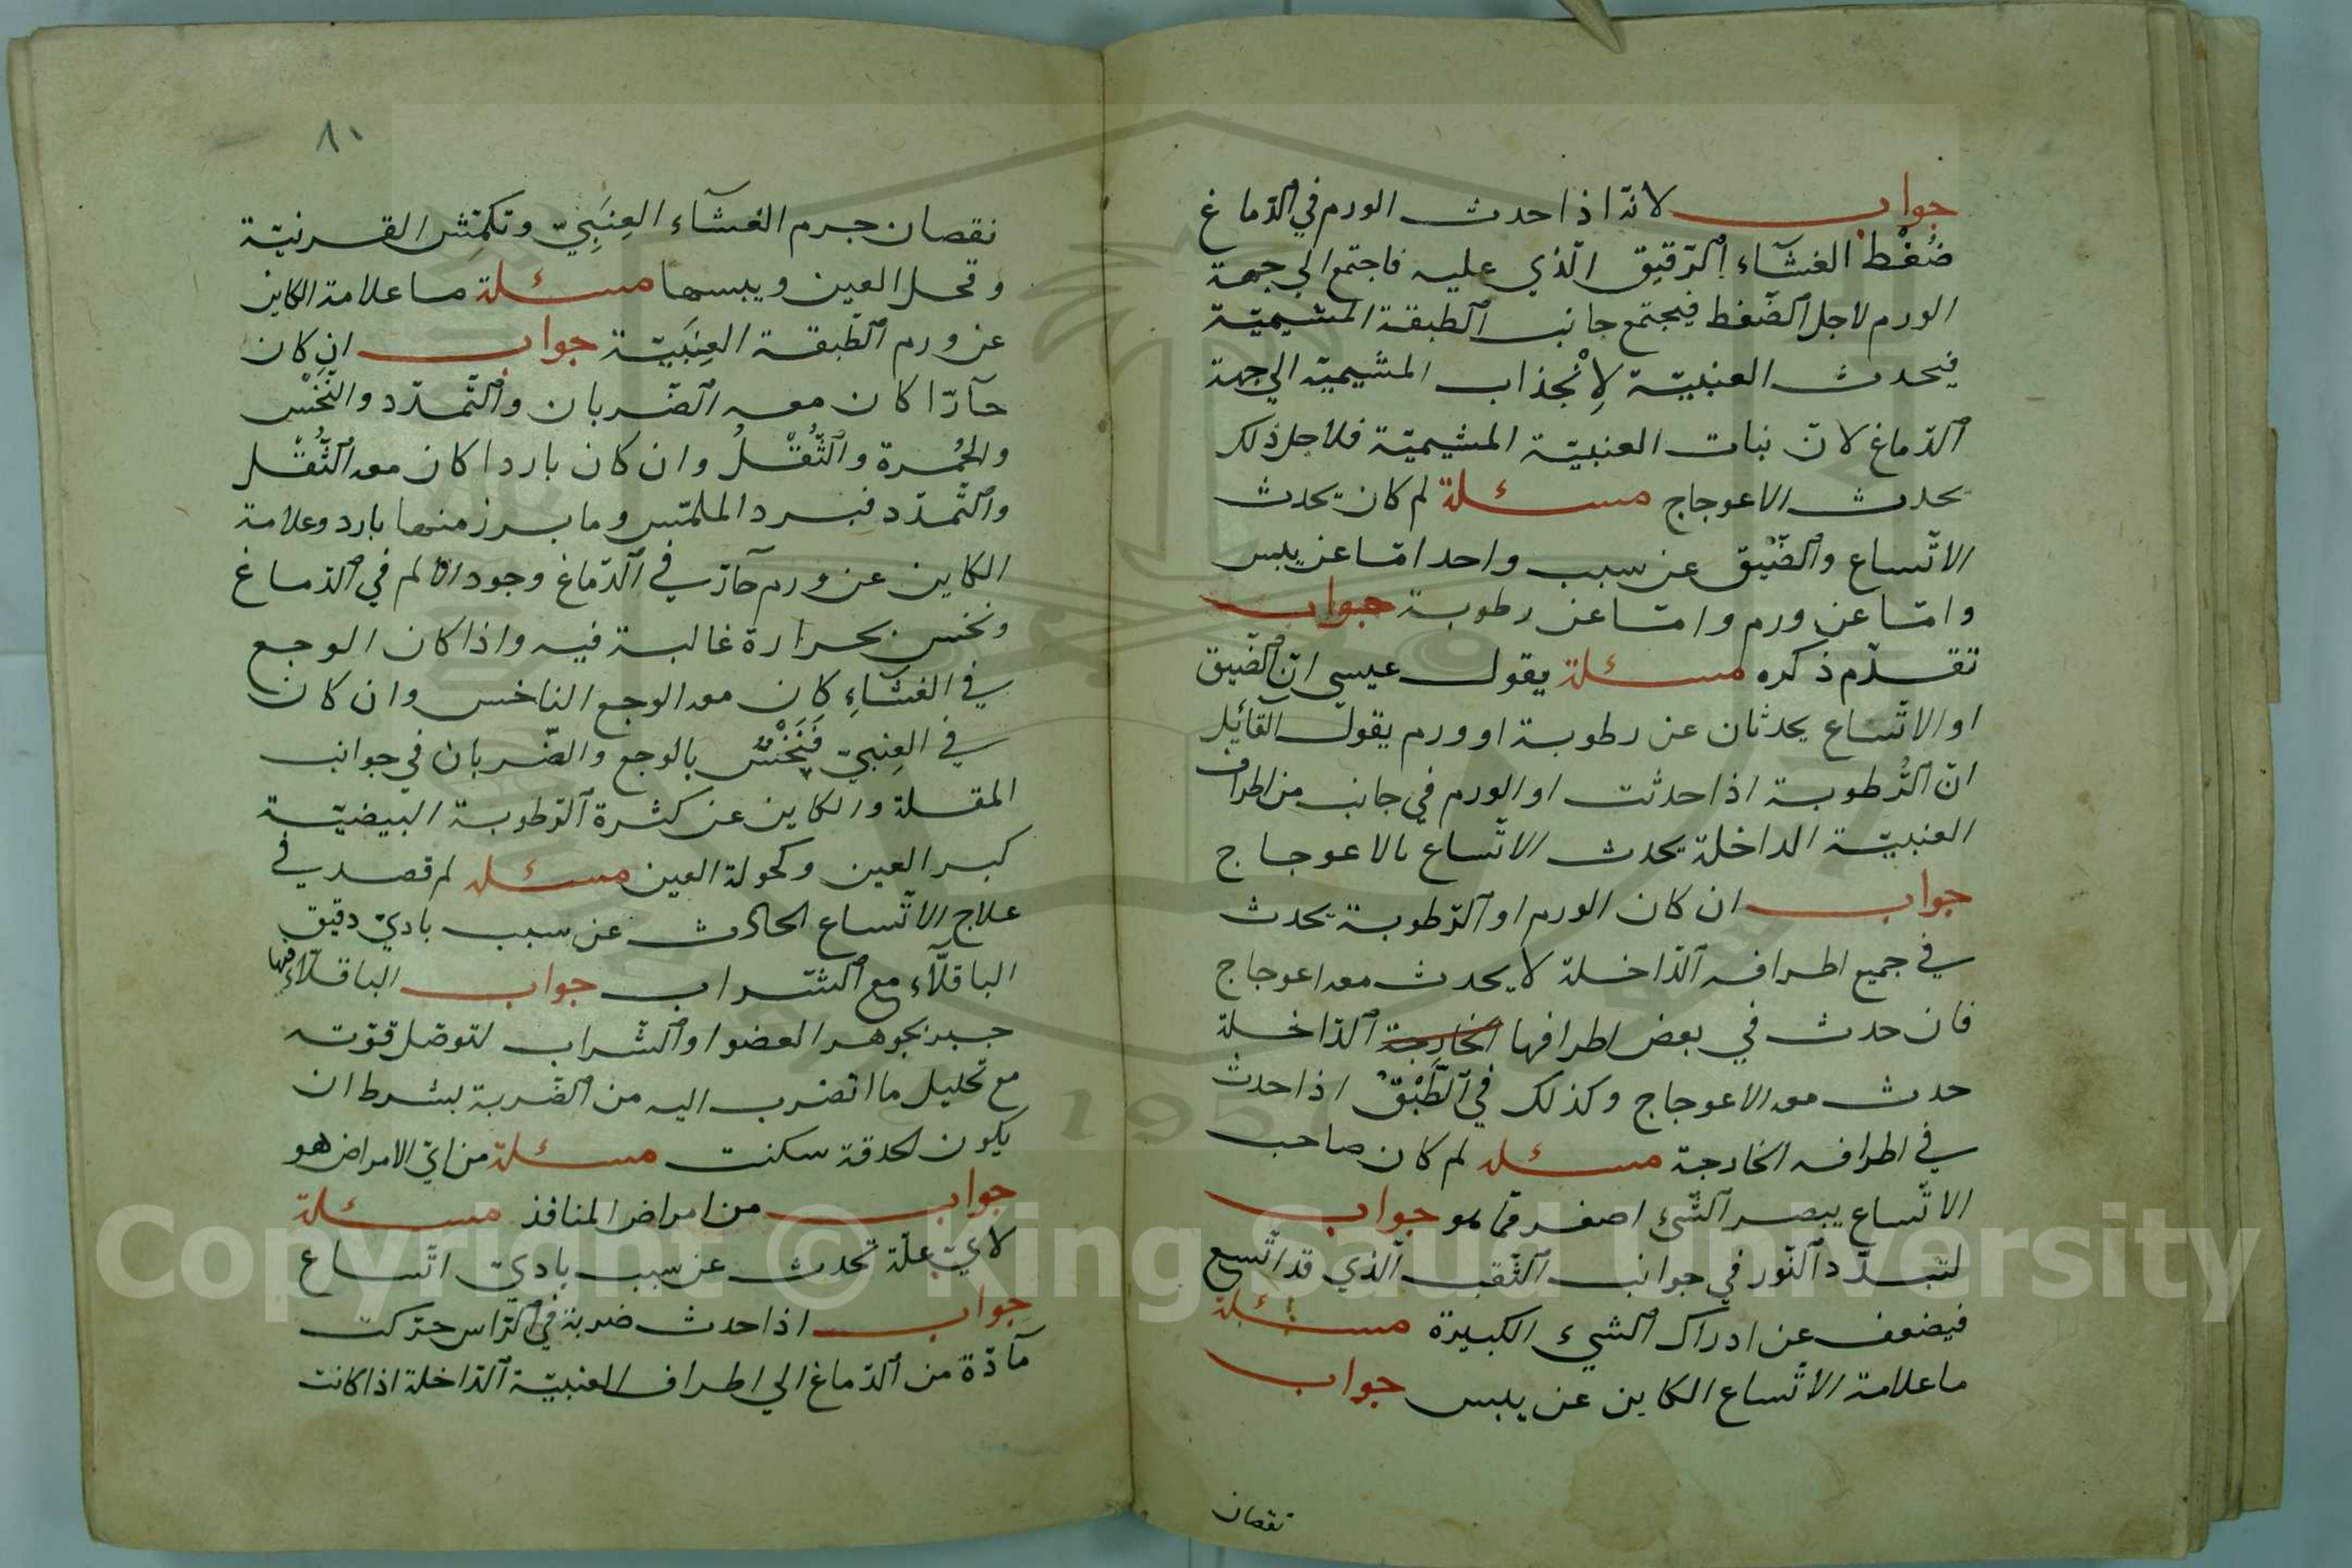 جواب لانّه اذا حدث الورم في الدّماغ
ضُغْط الغشآء الرّقيق الّذي عليه فاجتمع الي جهة
الورم لاجل الضّغط فيجتمع جانب الطبقة المشيميّة
فيحدث العنبيّة لِانْجذاب المشيميّة الي جهة
الدّماغ لانّ نبات العنبيّة المشيميّة فلاجل ذلك
يحدث الاعوجاج مسئلة لم كان يحدث
الاتّساع والضّيْق عن سبب واحد امّا عن يبس
وامّا عن ورم وامّا عن رطوبة جواب
تقدّم ذكره مسئلة يقول عيسي انّ الضّيق
او الاتّساع يحدثان عن رطوبة او ورم يقول القآئل
انّ الرُّطوبة اذا حدثت او الورم في جانب من اطراف
العنبيّة الداخلة يحدث الاتّساع بالاعوجاج
جواب ان كان الورم او الرّطوبة يحدث
في جميع اطرافه الدّاخلة لا يحدث معه اعوجاج
فان حدث في بعض اطرافها الخارجة الدّاخلة
حدث معه الاعوجاج وكذلك في الطَّبْق اذا حدث
في اطرافه الخارجة مسئله لم كان صاحب
الاتّساع يبصر الشّئ اصغر ممّا هو جواب
لتبدّد النّور في جوانب الثّقب الّذي قد اتّسع
فيضعف عن ادراك الشيء الكبيرة مسئلة
ما علامة الاتّساع الكاين عن يبس جواب
نقصان
٨١
نقصان جرم الغشآء العِنَبِيّ وتكمّش القرنيّة
وقحل العين ويبسها مسئلة ما علامة الكاين
عن ورم الطّبقة العِنَبيّة جواب ان كان
حآرّا كان معه الضّربان والتّمدّد والنّخْس
والحُمْرة والثُّقْلُ وان كان باردا كان معه الثُّقْل
والتّمدّد فبرد الملمّس وما يبرز منها بارد وعلامة
الكاين عن ورم حآرّ في الدّماغ وجود الالم في الدّماغ
ونخس بحرارة غالبة فيه واذا كان الوجع
في الغشآءِ كان معه الوجع الناخس وان كان
في العِنبيّ فَنَخْسٌ بالوجع والضّربان في جوانب
المقلة والكاين عن كثرة الرّطوبة البيضيّة
كبر العين وكحولة العين مسئله لم قصد في
علاج الاتّساع الحادث عن سبب باديّ دقيق
الباقلّآء مع الشّراب جواب الباقلّآء فيها
جبر بجوهر العضو او الشّراب لتوصّل قوّته
مع تحليل ما انضرب اليه من الضّربة بشرط ان
يكون الحدقة سكنت مسئلة من ايّ الامراض هو
جواب من امراض المنافذ مسئلة
لايّ علّة تحدث عن سبب باديّ اتّساع
جواب اذا حدث ضربة في الرّاس حرّكت
مآدّة من الدّماغ الي اطراف العنبيّة الدّاخلة اذا كانت
Copyright © King Saud University
1957